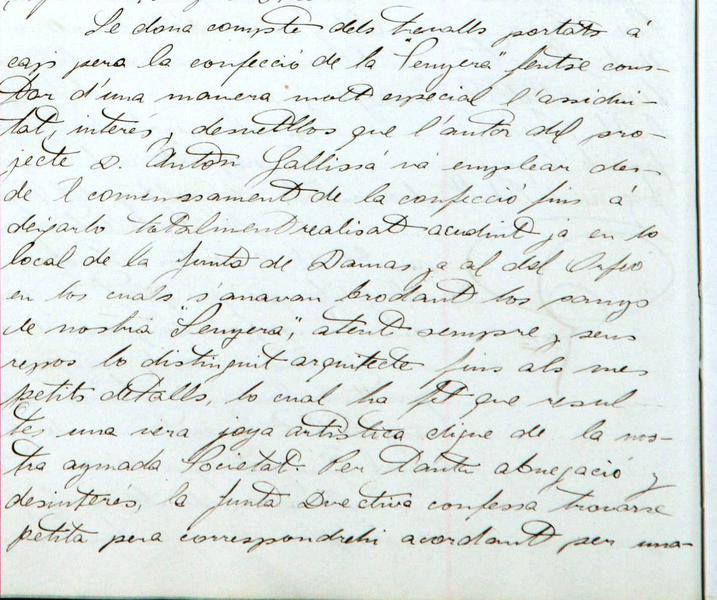 Se dona compte dels trevalls portats á
cap pera la confecció de la "Senyera" fentse cons-
tar d'una manera molt especial l'assidui-
tat, interés, y desvetllos que l'autor del pro-
jecte D. Antón Gallissá vá emplear des-
de l comensament de la confecció fins á
deixarlo totalment realisat acudint ja en lo
local de la Junta de Damas ja al del Orfeó
en los cuals s'anavan brodant los panys
de nostra "Senyera", atent sempre y sens
repos lo distinguit arquitecte fins als mes
petits detalls, lo cual ha fet que resul-
tés una vera joya artística digne de la nos-
tra aymada Societat. Per tanta abnegació y
desinterés, la Junta Directiva confessa trovarse
petita pera correspondrehi acordant per una-